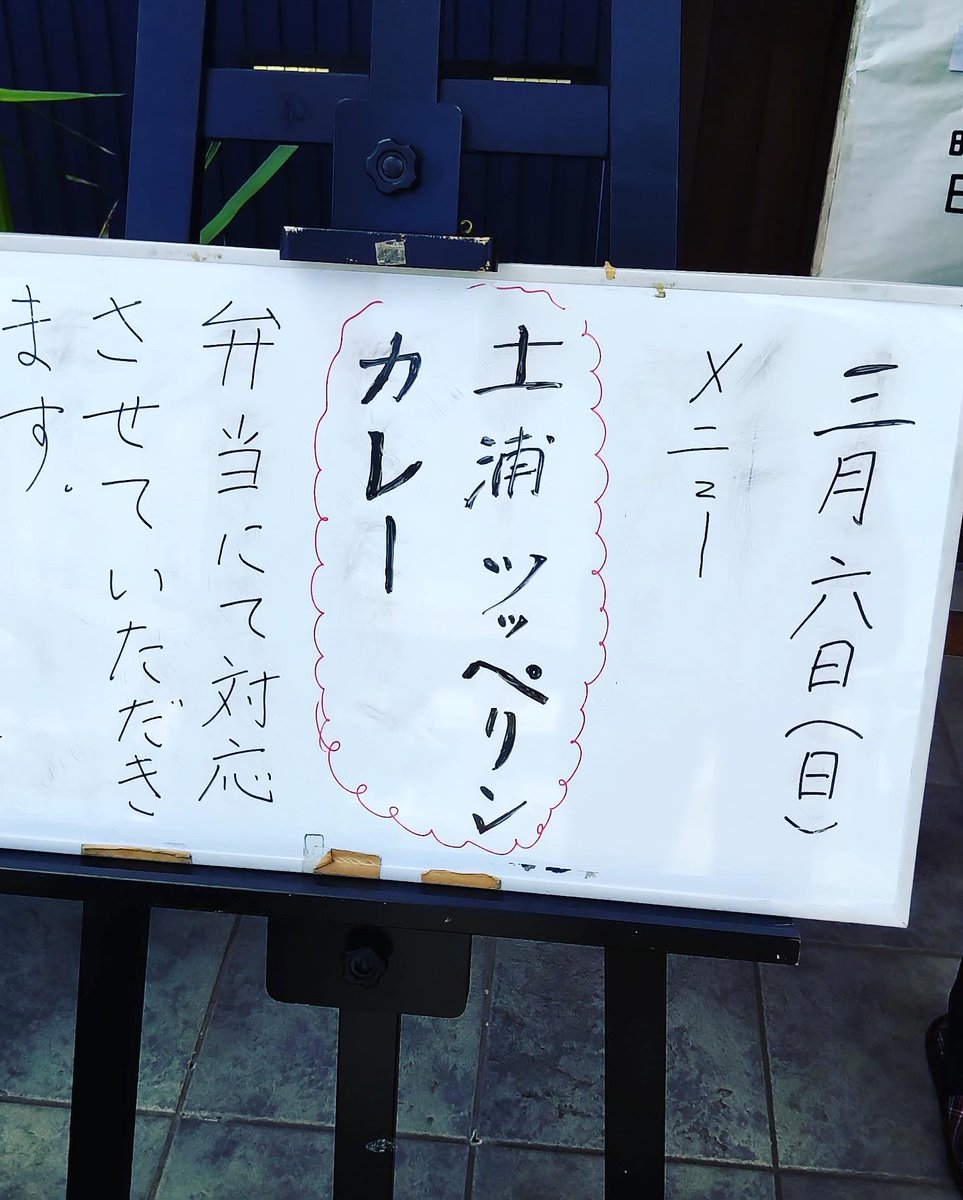 三月六日(日)
メニュー
土浦ツッペリン
カレー
弁当にて対応
させていただき
ます。